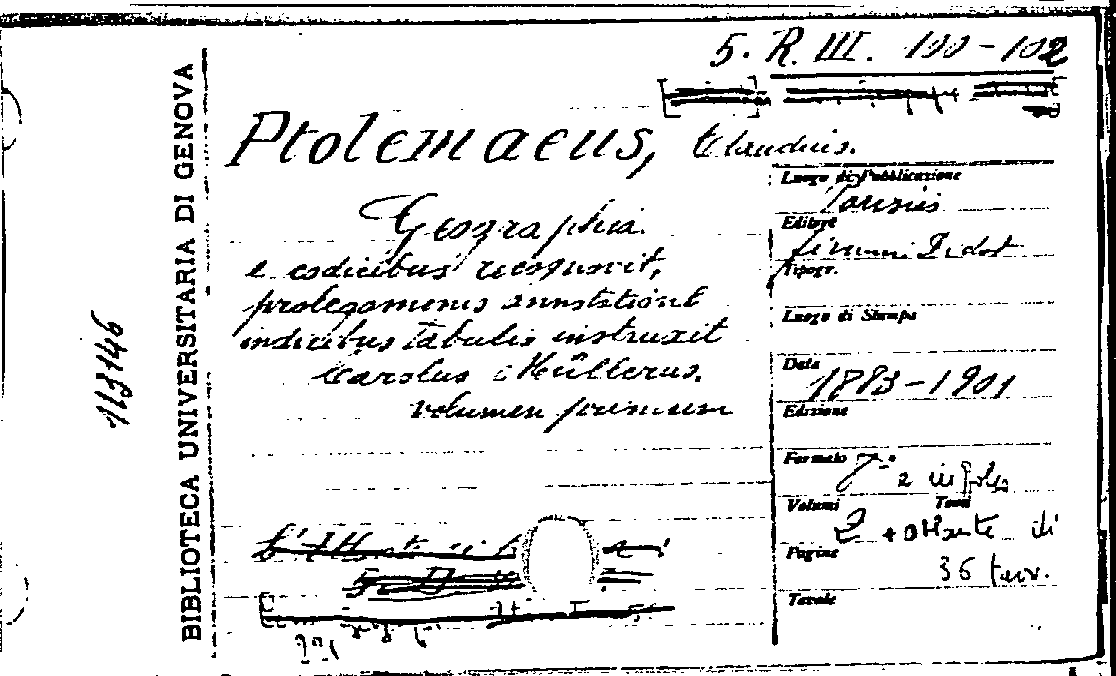 5. R. III. 100-102
Ptolemaeus, Claudius.
Geographia.
e codicibus recognovit,
prolegomenis annotatione
indicibus tabulis instruxit
Carolus Müllerus.
volumen primum
Luogo di Pubblicazione
Parisiis
Editore
Firmin Didot
Tipogr.
Luogo di Stampa
Data
1883-1901
Edizione
Formato
in folio
Volumi Tomi
2 + atlante di
Pagine
36 tavv.
Tavole
BIBLIOTECA UNIVERSITARIA DI GENOVA
113146